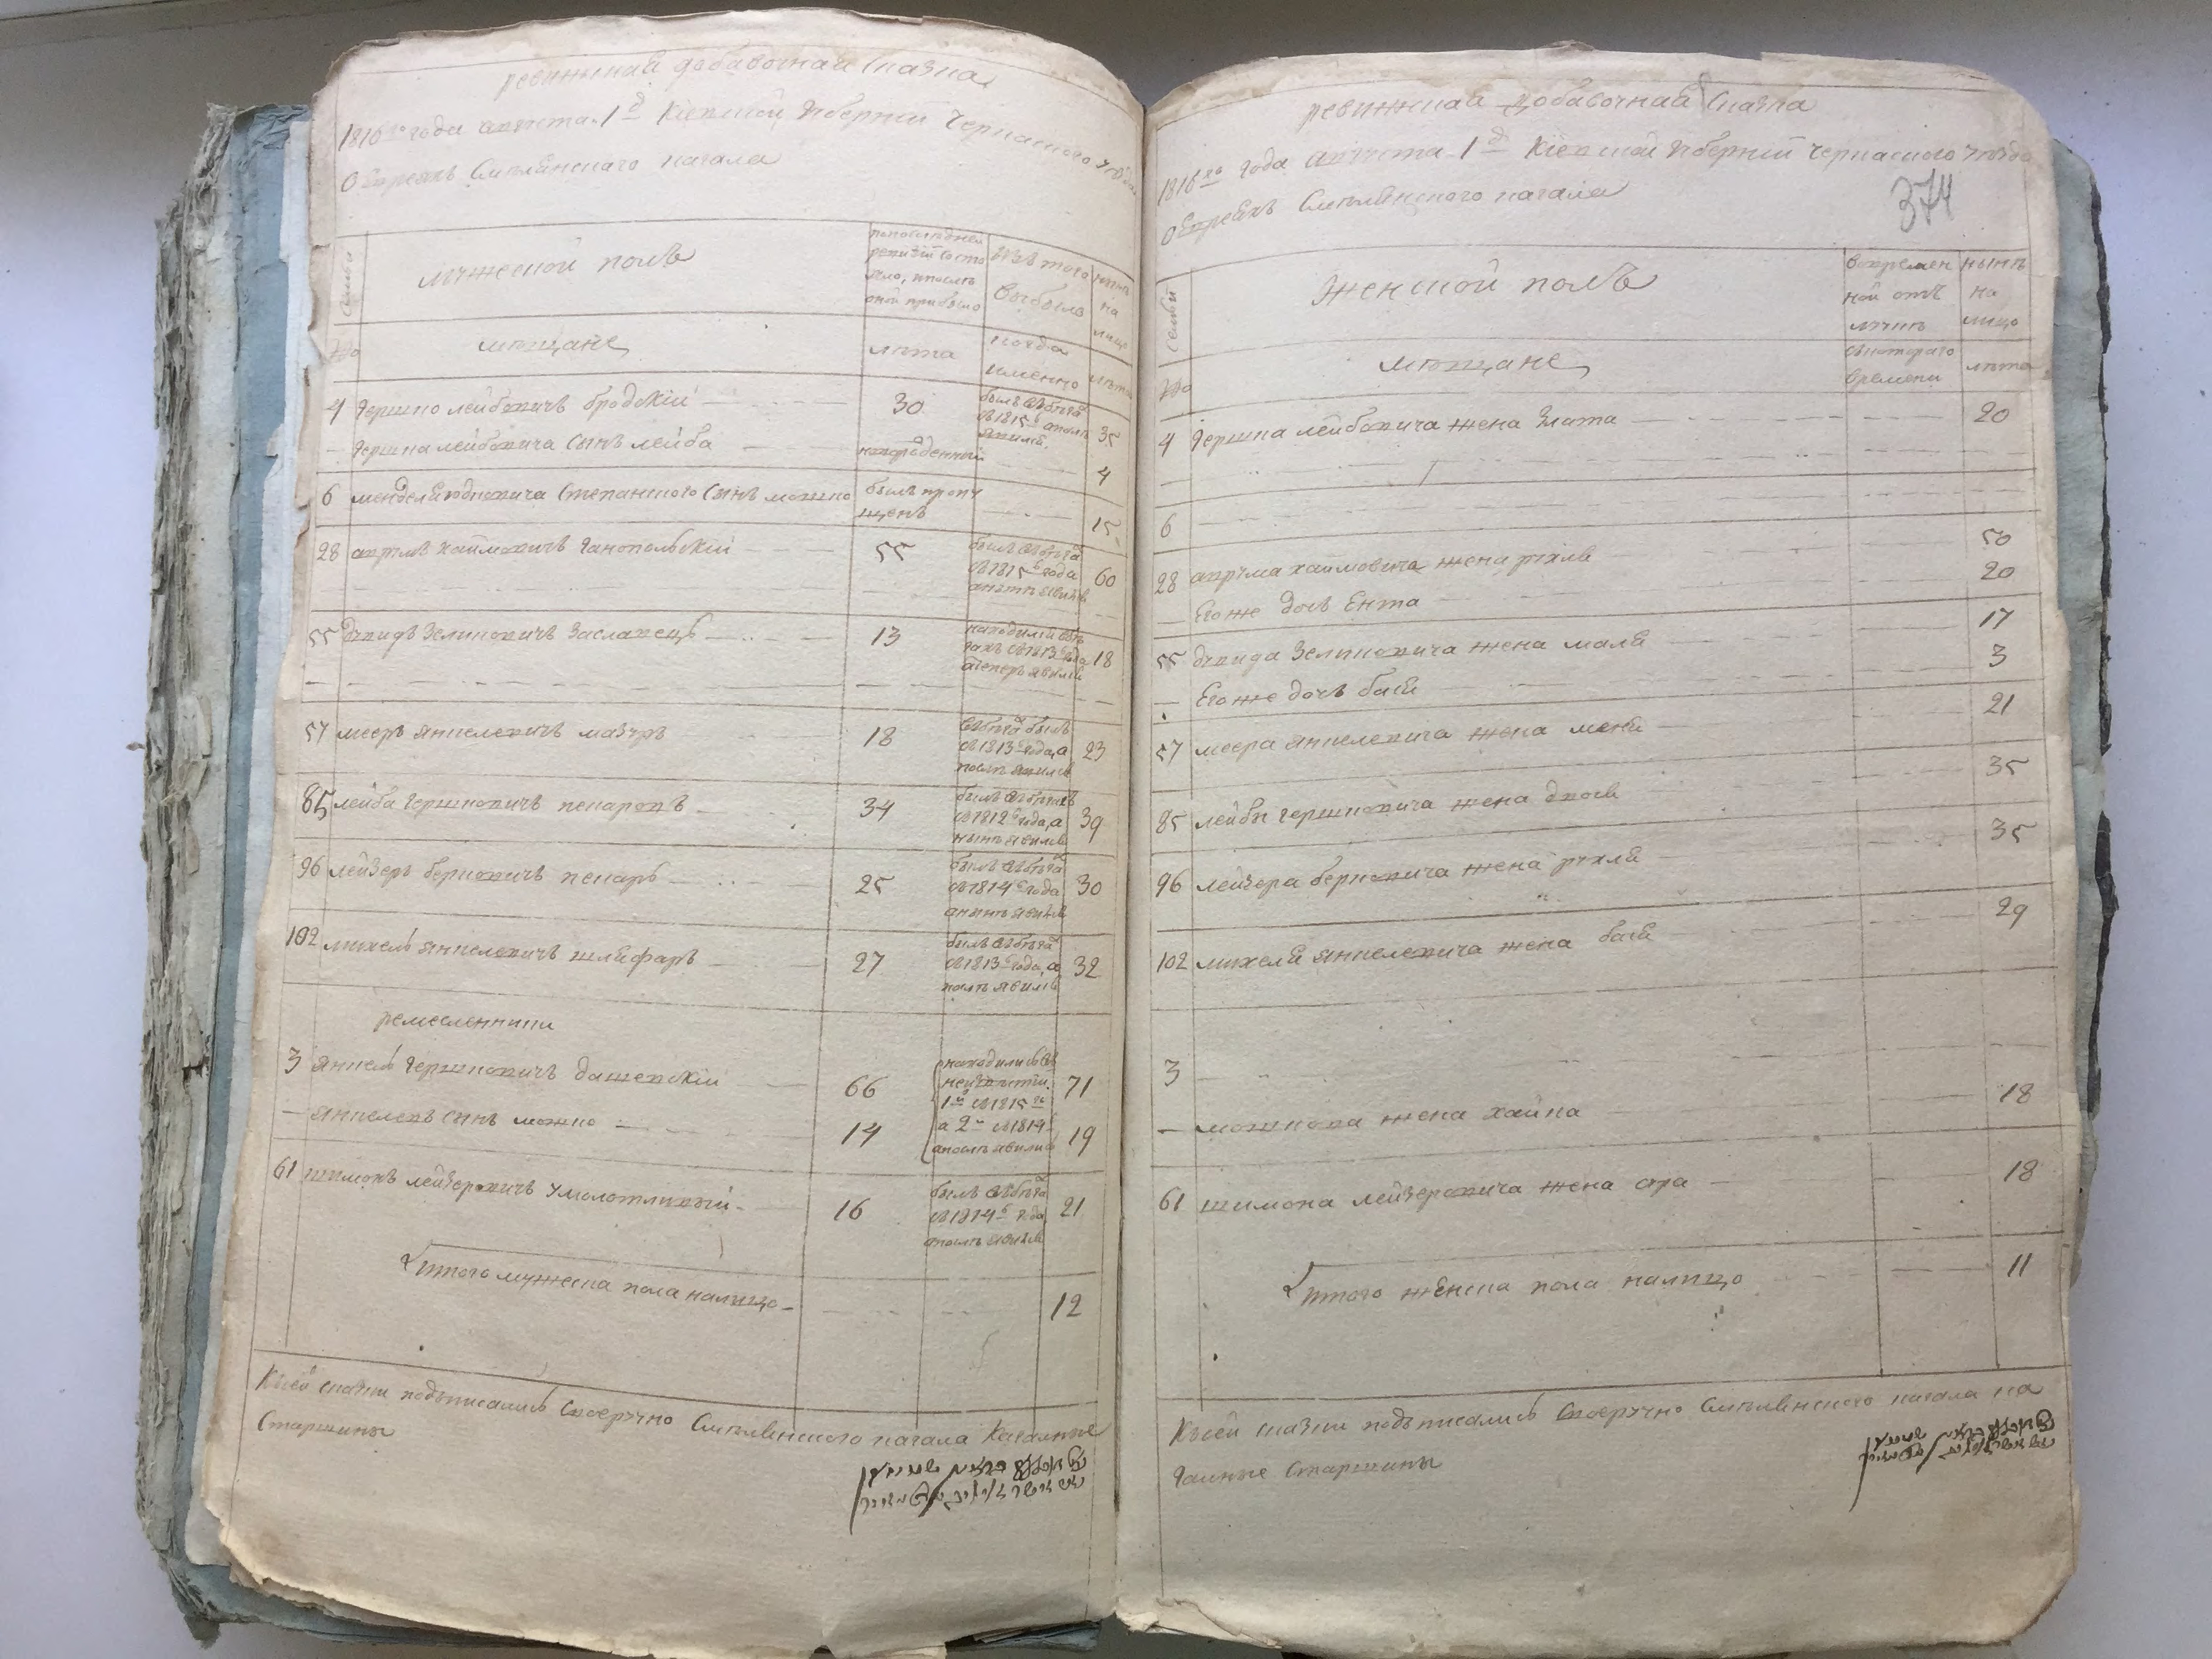 ревижская добавочная сказка
1816го года августа 1 д Кіевской губерніи Черкаского уезда
О Евреях Смелянского кагала
семьи
мужеской полъ
по последней
ревизіи состо
яло, и после
оной прибыло
изъ того
выбыло
ныне
на
лицо
№
мещане
лета
когда
именно
лета
4 Гершко лейбовичъ бродскій 30 былъ въ бегах
съ 1815
явился 35
Гершка лейбовича сынъ лейба новорожденный 4
6 мендел Степанского сынъ мошко былъ пропу
щенъ 15
28 аврумъ хаймовичъ Ганопольскій 55 былъ въ бегах
съ 1815 года
а ныне явился 60
55 Давидъ Зеликовичъ Заславецъ 13 находился въ бе
гахъ съ 1813 года
а теперь явился 18
57 мееръ янкелевичъ мазуръ 18 въ бегах былъ
съ 1813 года, а
явился 23
85 лейба гершковичъ 34 былъ в бегахъ
съ 1812 года, а
ныне явился 39
96 лейзеръ берковичъ пекаръ 25 былъ въ бегах
съ 1814 года
а ныне явился 30
102 михель янкелевичъ шлифаръ 27 былъ въ бегах
съ 1813 года, а
явился 32
ремесленники
3 янкель гершковичъ дашевскій 66 находились въ
1й съ 1815 71
янкелевъ сынъ мошко 14 а 2й съ 1814
явились 19
61 шимонъ лейзеровичъ 16 былъ въ бегах
съ 1814 года
явился 21
Итого мужеска пола налицо 12
К сей сказки подъписались своеручно Смелянского кагала Кагальные
Старшины
ревижская добавочная Сказка
1816го года августа 1 д Кіевской губерніи Черкаского уезда
О Евреяхъ Смелянского кагала
374
семьи
Женской полъ
во времен
ной отъ
лучке
ныне
на
лицо
№
мещане
съ котораго
времени
лета
4 Гершка лейбовича жена Злата 20
6
28 аврума хаймовича жена рухля 50
Его же дочь Ента 20
55 давида Зеликовича жена маля 17
Его же дочь бася 3
57 меера янкелевича жена меня 21
85 лейбы гершковича жена двося 35
96 лейзера берковича жена рухля 35
102 михеля янкелевича жена бася 29
3
мошкова жена хайка 18
61 шимона лейзеровича жена сура 18
Итого женска пола налицо 11
К сей сказки подъписались Своеручно Смелянского кагала ка
гальные Старшины